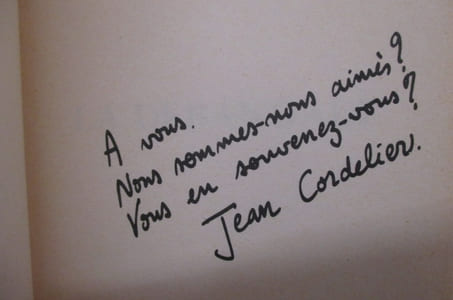 A vous.
Nous sommes-nous aimés?
Vous en souvenez-vous?
Jean Cordelier.